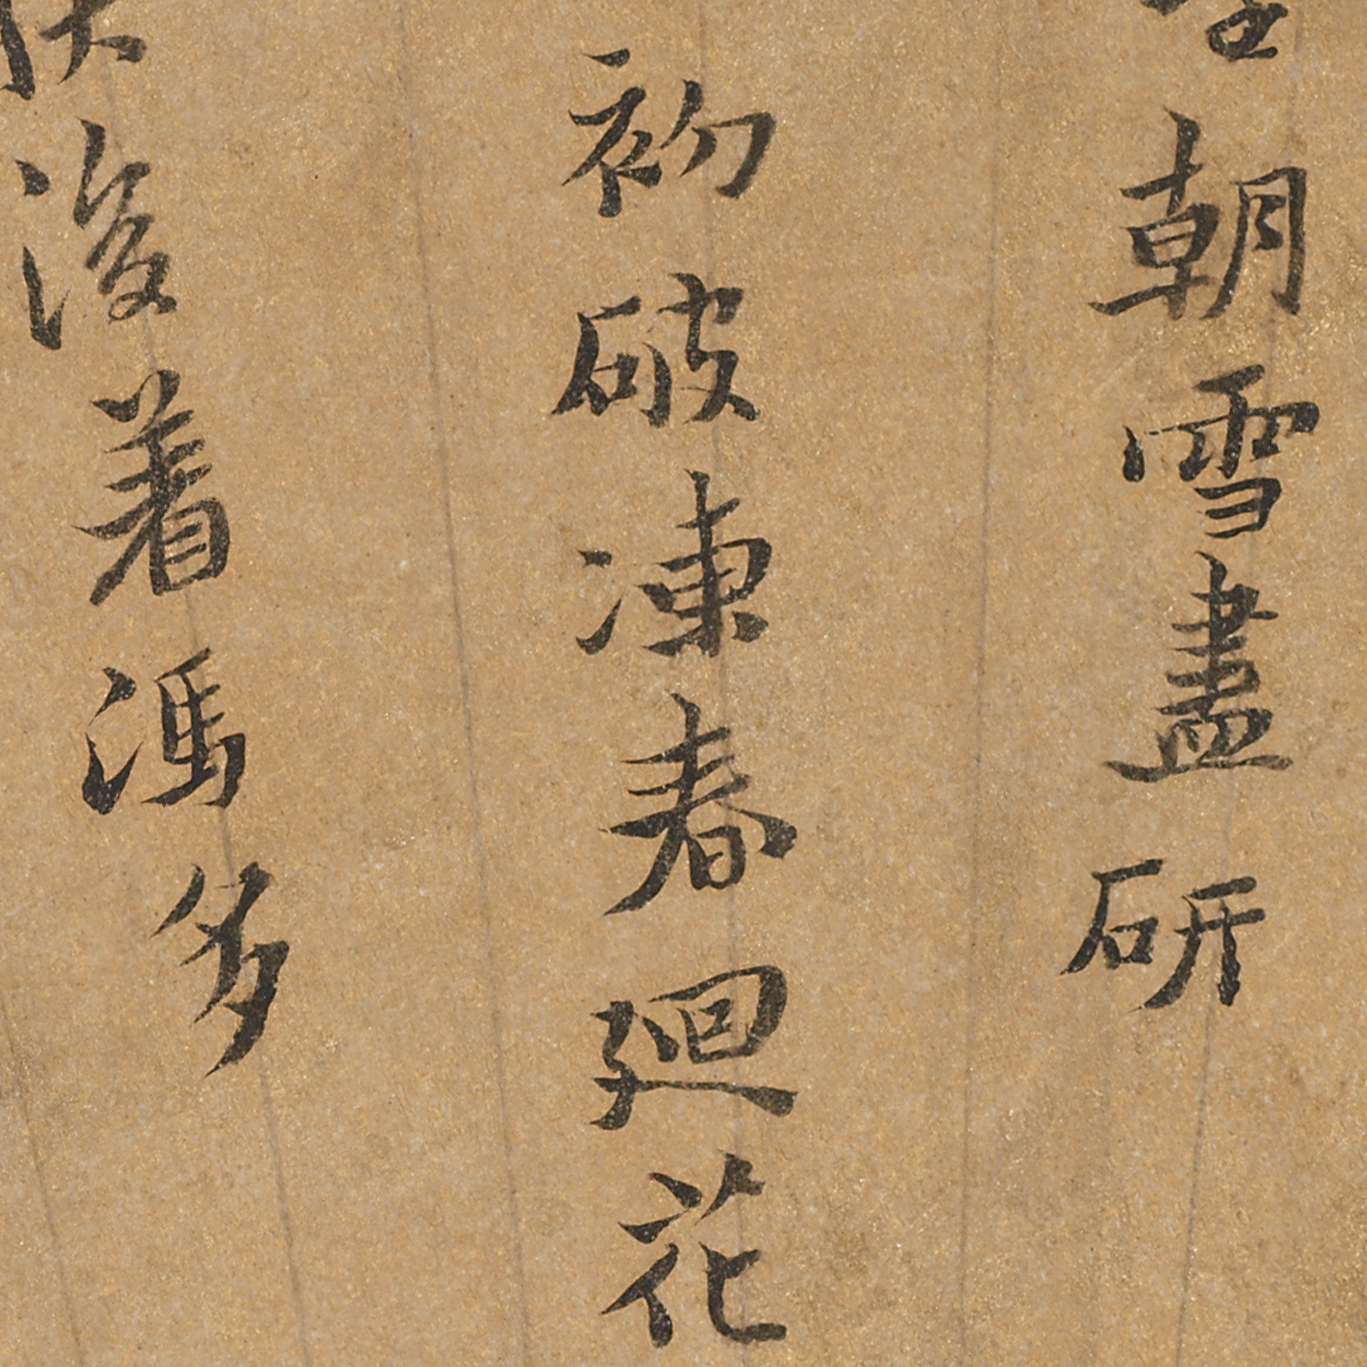 朝雪盡研
初破凍春廻花
後着馮多